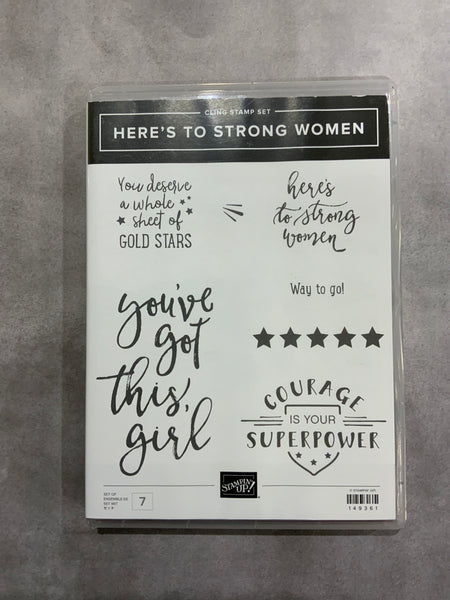 CLING STAMP SET
HERE'S TO STRONG WOMEN
You deserve
a whole
sheet of
GOLD STARS
here's
to strong
women
Way to go!
you've
got
this,
girl
COURAGE
IS YOUR
SUPERPOWER
SET OF
ENSEMBLE DE
SET MIT
7
STAMPIN'
UP!
© STAMPIN' UP!
149361